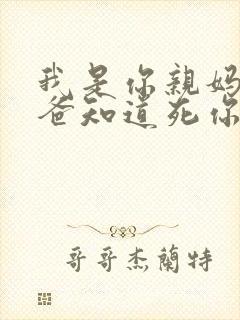 我是你親媽
爸知道死你
哥哥杰蘭特